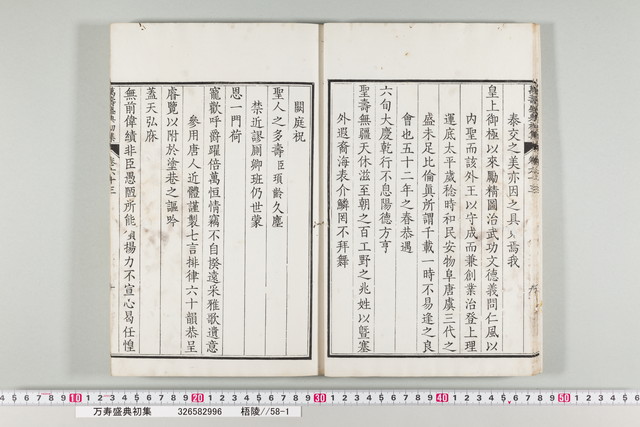 泰交之美亦因之具見焉我
皇上御極以來勵精圖治武功文德義問仁風以
內聖而該外王以守成而兼創業治登上理
運底太平歲稔時和民安物阜唐虞三代之
盛未足比倫眞所謂千載一時不易逢之良
會也五十二年之春恭遇
六旬大慶乾行不息陽德方亨
聖壽無疆天休滋至朝之百工野之兆姓以曁塞
外遐裔海表介鱗罔不拜舞
闕庭祝
聖人之多壽臣瑣齡久塵
禁近謬厠卿班仍世蒙
恩一門荷
寵歡呼爵躍倍萬恒情竊不自揆遠采雅歌遺意
參用唐人近體謹製七言排律六十韻恭呈
睿覽以附於塗巷之謳吟
蓋天弘庥
無前偉績非臣愚陋所能頌揚力不宣心曷任惶
10 20 30 40 50
万寿盛典初集 326582996 梧陵//58-1